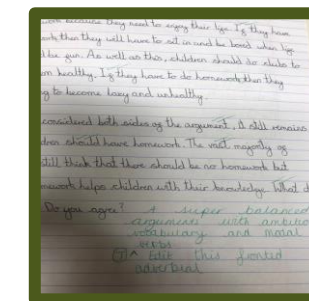 work because they need to enjoy their life. If they have
work then they will have to sit in and be bored when life
d be fun. As well as this, children should do clubs to
m healthy. If they have to do homework then they
g to become lazy and unhealthy.
considered both sides of the argument, it still remains
dren should have homework. The vast majority of
still think that there should be no homework but
mework helps children with their knowledge. What d
Do you agree? A super balanced
argument with ambitio
vocabulary and modal
verbs
Edit this fronted
adverbial